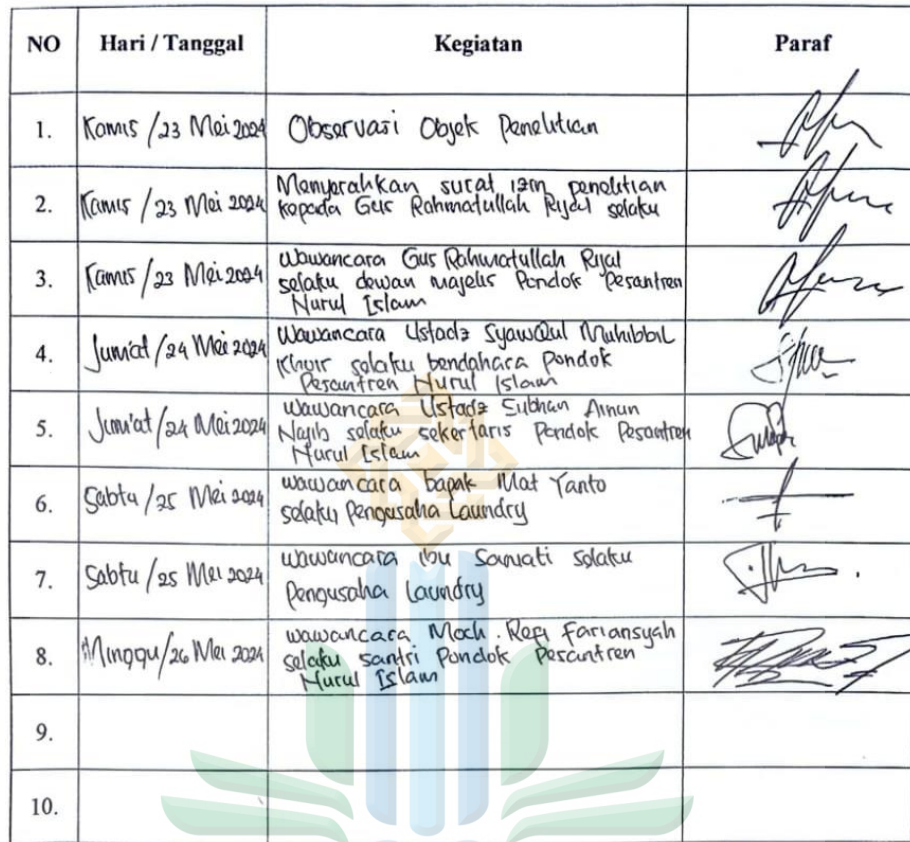 NO Hari / Tanggal Kegiatan Paraf
1. Kamis / 23 Mei 2024 Observasi Objek Penelitian
2. Kamis / 23 Mei 2024 Menyerahkan surat izin penelitian
kepada Gus Rahmatullah Rijal selaku
3. Kamis / 23 Mei 2024 Wawancara Gus Rahmatullah Rijal
selaku dewan majelis Pondok Pesantren
Nurul Islam
4. Jum'at / 24 Mei 2024 Wawancara Ustadz Syawalul Muhibbil
Khoir selaku bendahara Pondok
Pesantren Nurul Islam
5. Jum'at / 24 Mei 2024 Wawancara Ustadz Subhan Ainun
Najib selaku sekertaris Pondok Pesantren
Nurul Islam
6. Sabtu / 25 Mei 2024 wawancara bapak Mat Yanto
selaku Pengusaha Laundry
7. Sabtu / 25 Mei 2024 wawancara ibu selaku
Pengusaha Laundry
8. Minggu / 26 Mei 2024 wawancara Moch. Fariansyah
selaku santri Pondok Pesantren
Nurul Islam
9.
10.